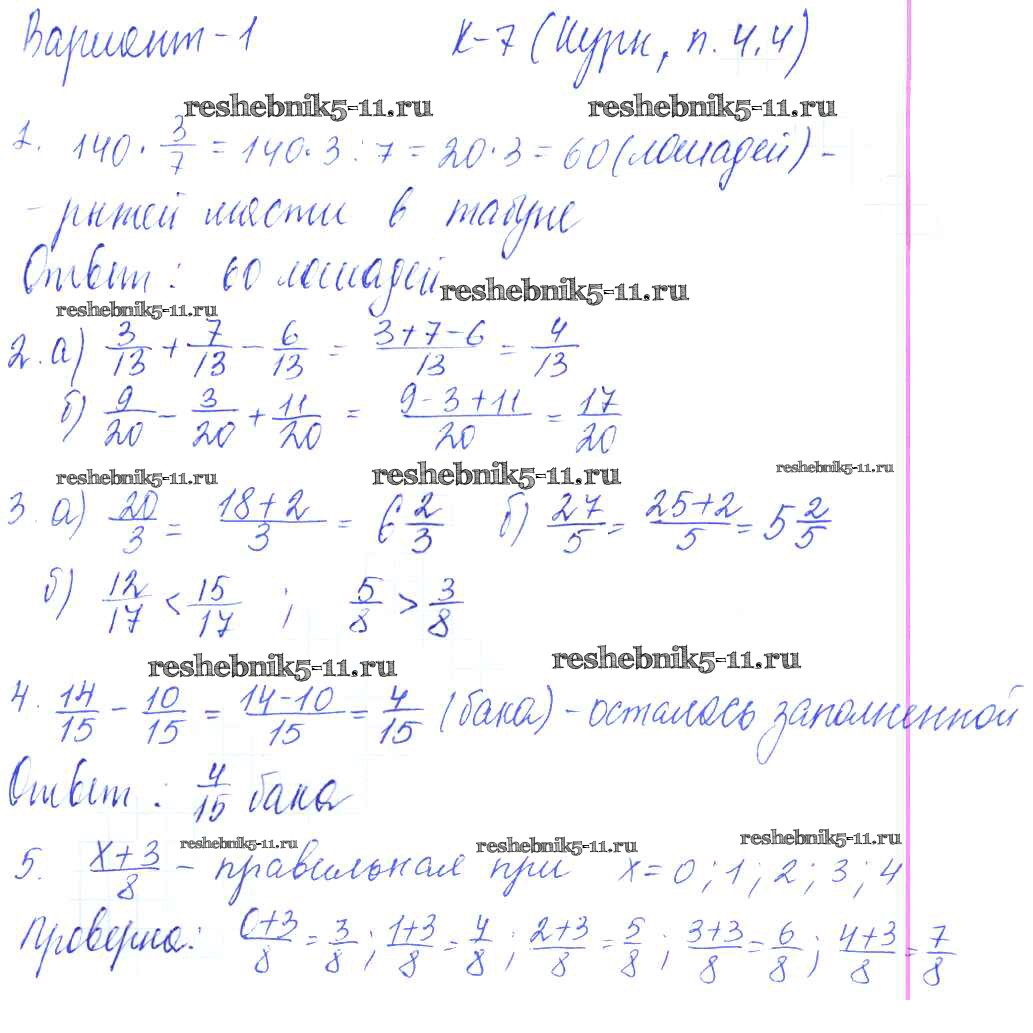 Вариант-1 К-7 (Нурк, п. 4.4)
reshebnik5-11.ru reshebnik5-11.ru
1. 140 · 3/7 = 140·3:7 = 20·3 = 60 (лошадей) -
- рыжей масти в табуне
Ответ: 60 лошадей
reshebnik5-11.ru
reshebnik5-11.ru
2. а) 3/13 + 7/13 - 6/13 = (3+7-6)/13 = 4/13
б) 9/20 - 3/20 + 11/20 = (9-3+11)/20 = 17/20
reshebnik5-11.ru reshebnik5-11.ru reshebnik5-11.ru
3. а) 20/3 = (18+2)/3 = 6 2/3 б) 27/5 = (25+2)/5 = 5 2/5
б) 12/17 < 15/17 ; 5/8 > 3/8
reshebnik5-11.ru reshebnik5-11.ru
4. 14/15 - 10/15 = (14-10)/15 = 4/15 (бака) - осталось заполненной
Ответ: 4/15 бака
reshebnik5-11.ru reshebnik5-11.ru reshebnik5-11.ru
5. (х+3)/8 - правильная при х = 0; 1; 2; 3; 4
Проверка: (0+3)/8 = 3/8; (1+3)/8 = 4/8; (2+3)/8 = 5/8; (3+3)/8 = 6/8; (4+3)/8 = 7/8